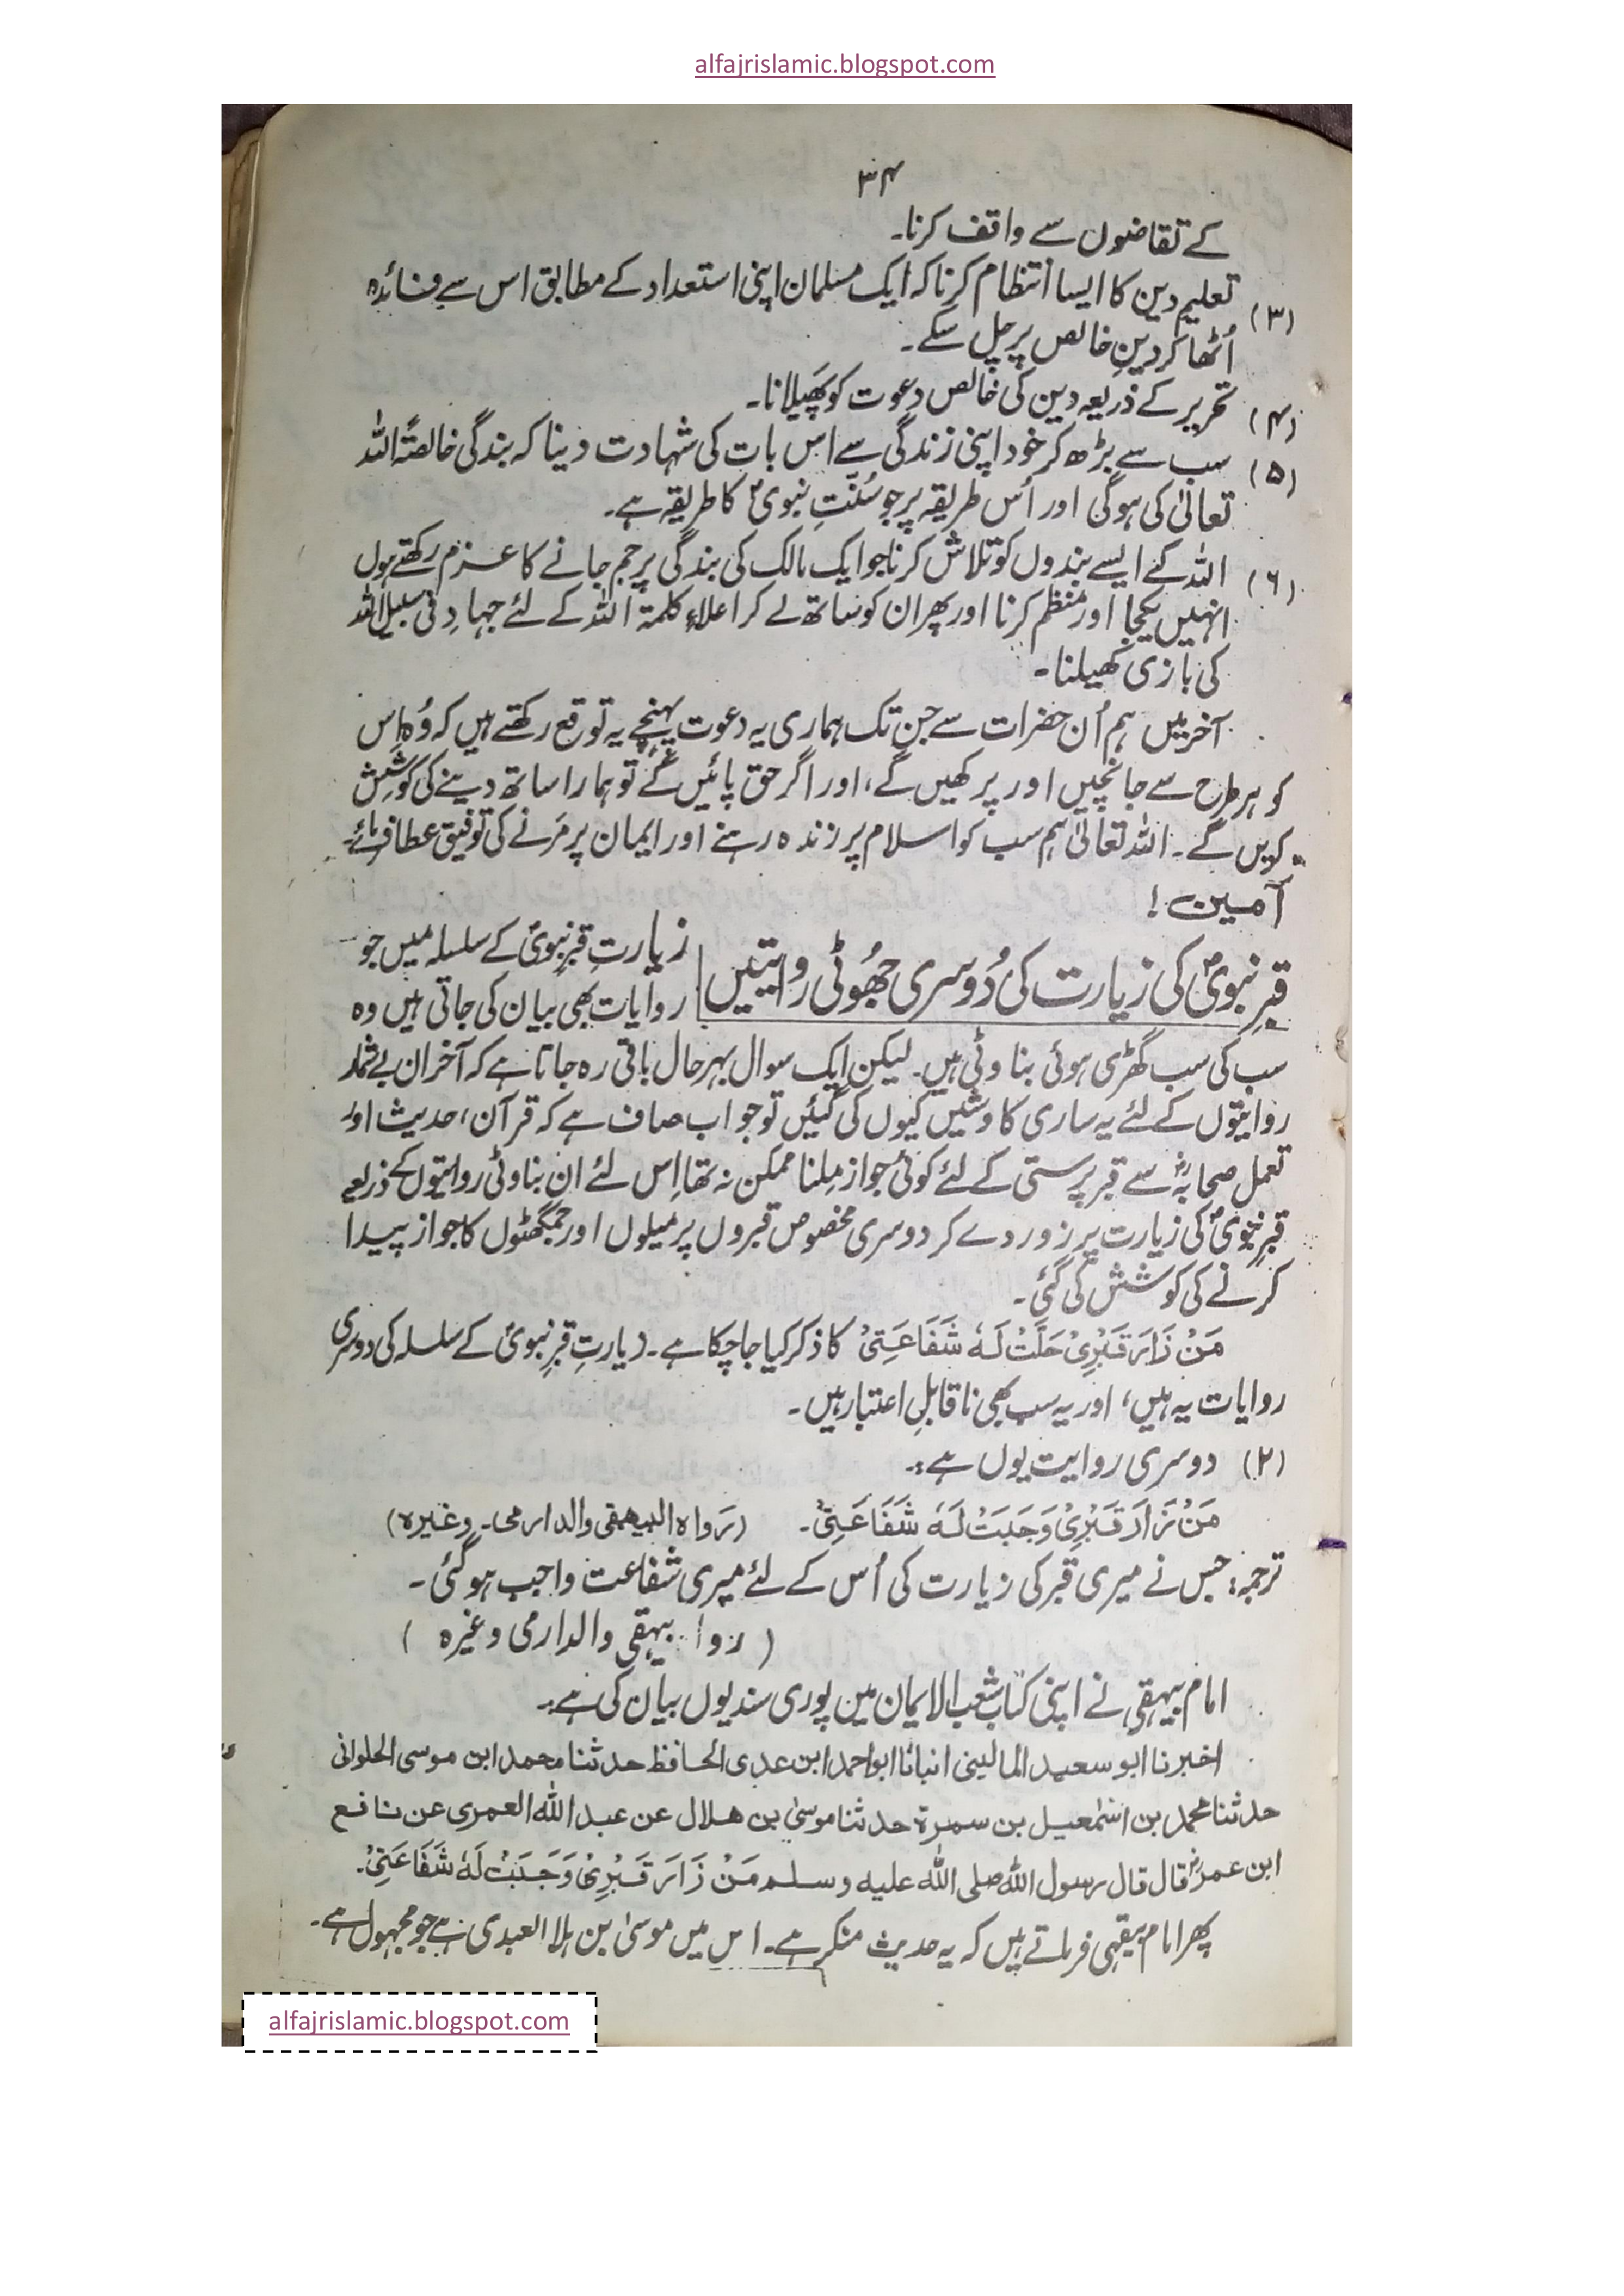 alfajrislamic.blogspot.com
۳۴
کے تقاضوں سے واقف کرنا۔
(۳) تعلیم دین کا ایسا انتظام کرنا کہ ایک مسلمان اپنی استعداد کے مطابق اس سے فائدہ
اُٹھا کر دینِ خالص پر چل سکے۔
(۴) تحریر کے ذریعہ دین کی خالص دعوت کو پھیلانا۔
(۵) سب سے بڑھ کر خود اپنی زندگی سے اس بات کی شہادت دینا کہ بندگی خالصتًہ اللہ
تعالیٰ کی ہوگی اور اُس طریقہ پر جو سُنّتِ نبویؐ کا طریقہ ہے۔
(۶) اللہ کے ایسے بندوں کو تلاش کرنا جو ایک مالک کی بندگی پر جم جانے کا عزم رکھتے ہوں
انہیں یکجا اور منظم کرنا اور پھر ان کو ساتھ لے کر اعلاءِ کلمۃ اللہ کے لئے جہادِ فی سبیل اللہ
کی بازی کھیلنا۔
آخر میں ہم اُن حضرات سے جن تک ہماری یہ دعوت پہنچے یہ توقع رکھتے ہیں کہ وُہ اِس
کو ہر طرح سے جانچیں اور پرکھیں گے، اور اگر حق پائیں گے تو ہمارا ساتھ دینے کی کوشِش
کریں گے۔ اللہ تعالیٰ ہم سب کو اسلام پر زندہ رہنے اور ایمان پر مَرنے کی توفیق عطا فرمائے۔
آمین!
قبرِ نبویؐ کی زیارت کی دُوسری جھُوٹی روایتیں
زیارتِ قبرِ نبویؐ کے سلسلہ میں جو
روایات بھی بیان کی جاتی ہیں وہ
سب کی سب گھڑی ہوئی بناوٹی ہیں۔ لیکن ایک سوال بہرحال باقی رہ جاتا ہے کہ آخر ان بے شمار
روایتوں کے لئے یہ ساری کاوشیں کیوں کی گئیں تو جواب صاف ہے کہ قرآن، حدیث اور
تعمل صحابہؓ سے قبر پرستی کے لئے کوئی جواز مِلنا ممکن نہ تھا اِس لئے ان بناوٹی روایتوں کے ذریعے
قبرِ نبویؐ کی زیارت پر زور دے کر دوسری مخصوص قبروں پر میلوں اور جمگھٹوں کا جواز پیدا
کرنے کی کوشش کی گئی۔
مَنْ زَارَ قَبْرِیْ حَلَّتْ لَہٗ شَفَاعَتِیْ کا ذکر کیا جاچکا ہے۔ زیارتِ قبرِ نبویؐ کے سلسلہ کی دوسری
روایات یہ ہیں، اور یہ سب بھی ناقابلِ اعتبار ہیں۔
(۲) دوسری روایت یوں ہے:۔
مَنْ زَارَ قَبْرِیْ وَجَبَتْ لَہٗ شَفَاعَتِیْ۔ (رَواہ البیھقی والدارمی۔ وغیرہ)
ترجمہ: جس نے میری قبر کی زیارت کی اُس کے لئے میری شفاعت واجب ہوگئی۔
( روا بیہقی والدارمی وغیرہ )
امام بیہقی نے اپنی کتاب شعب الایمان میں پوری سند یوں بیان کی ہے:۔
اخبرنا ابو سعید المالینی انبانا ابواحمد ابن عدی الحافظ حدثنا محمد ابن موسی الحلوانی
حدثنا محمد بن اسمٰعیل بن سمرۃ حدثنا موسیٰ بن ھلال عن عبد اللہ العمری عن نافع
ابن عمرؓ قال قال رسول اللہ صلی اللہ علیہ وسلم مَنْ زَارَ قَبْرِیْ وَجَبَتْ لَہٗ شَفَاعَتِیْ۔
پھر امام بیقہی فرماتے ہیں کہ یہ حدیث منکر ہے۔ اس میں موسیٰ بن ہلا العبدی ہے جو مجہول ہے۔
alfajrislamic.blogspot.com